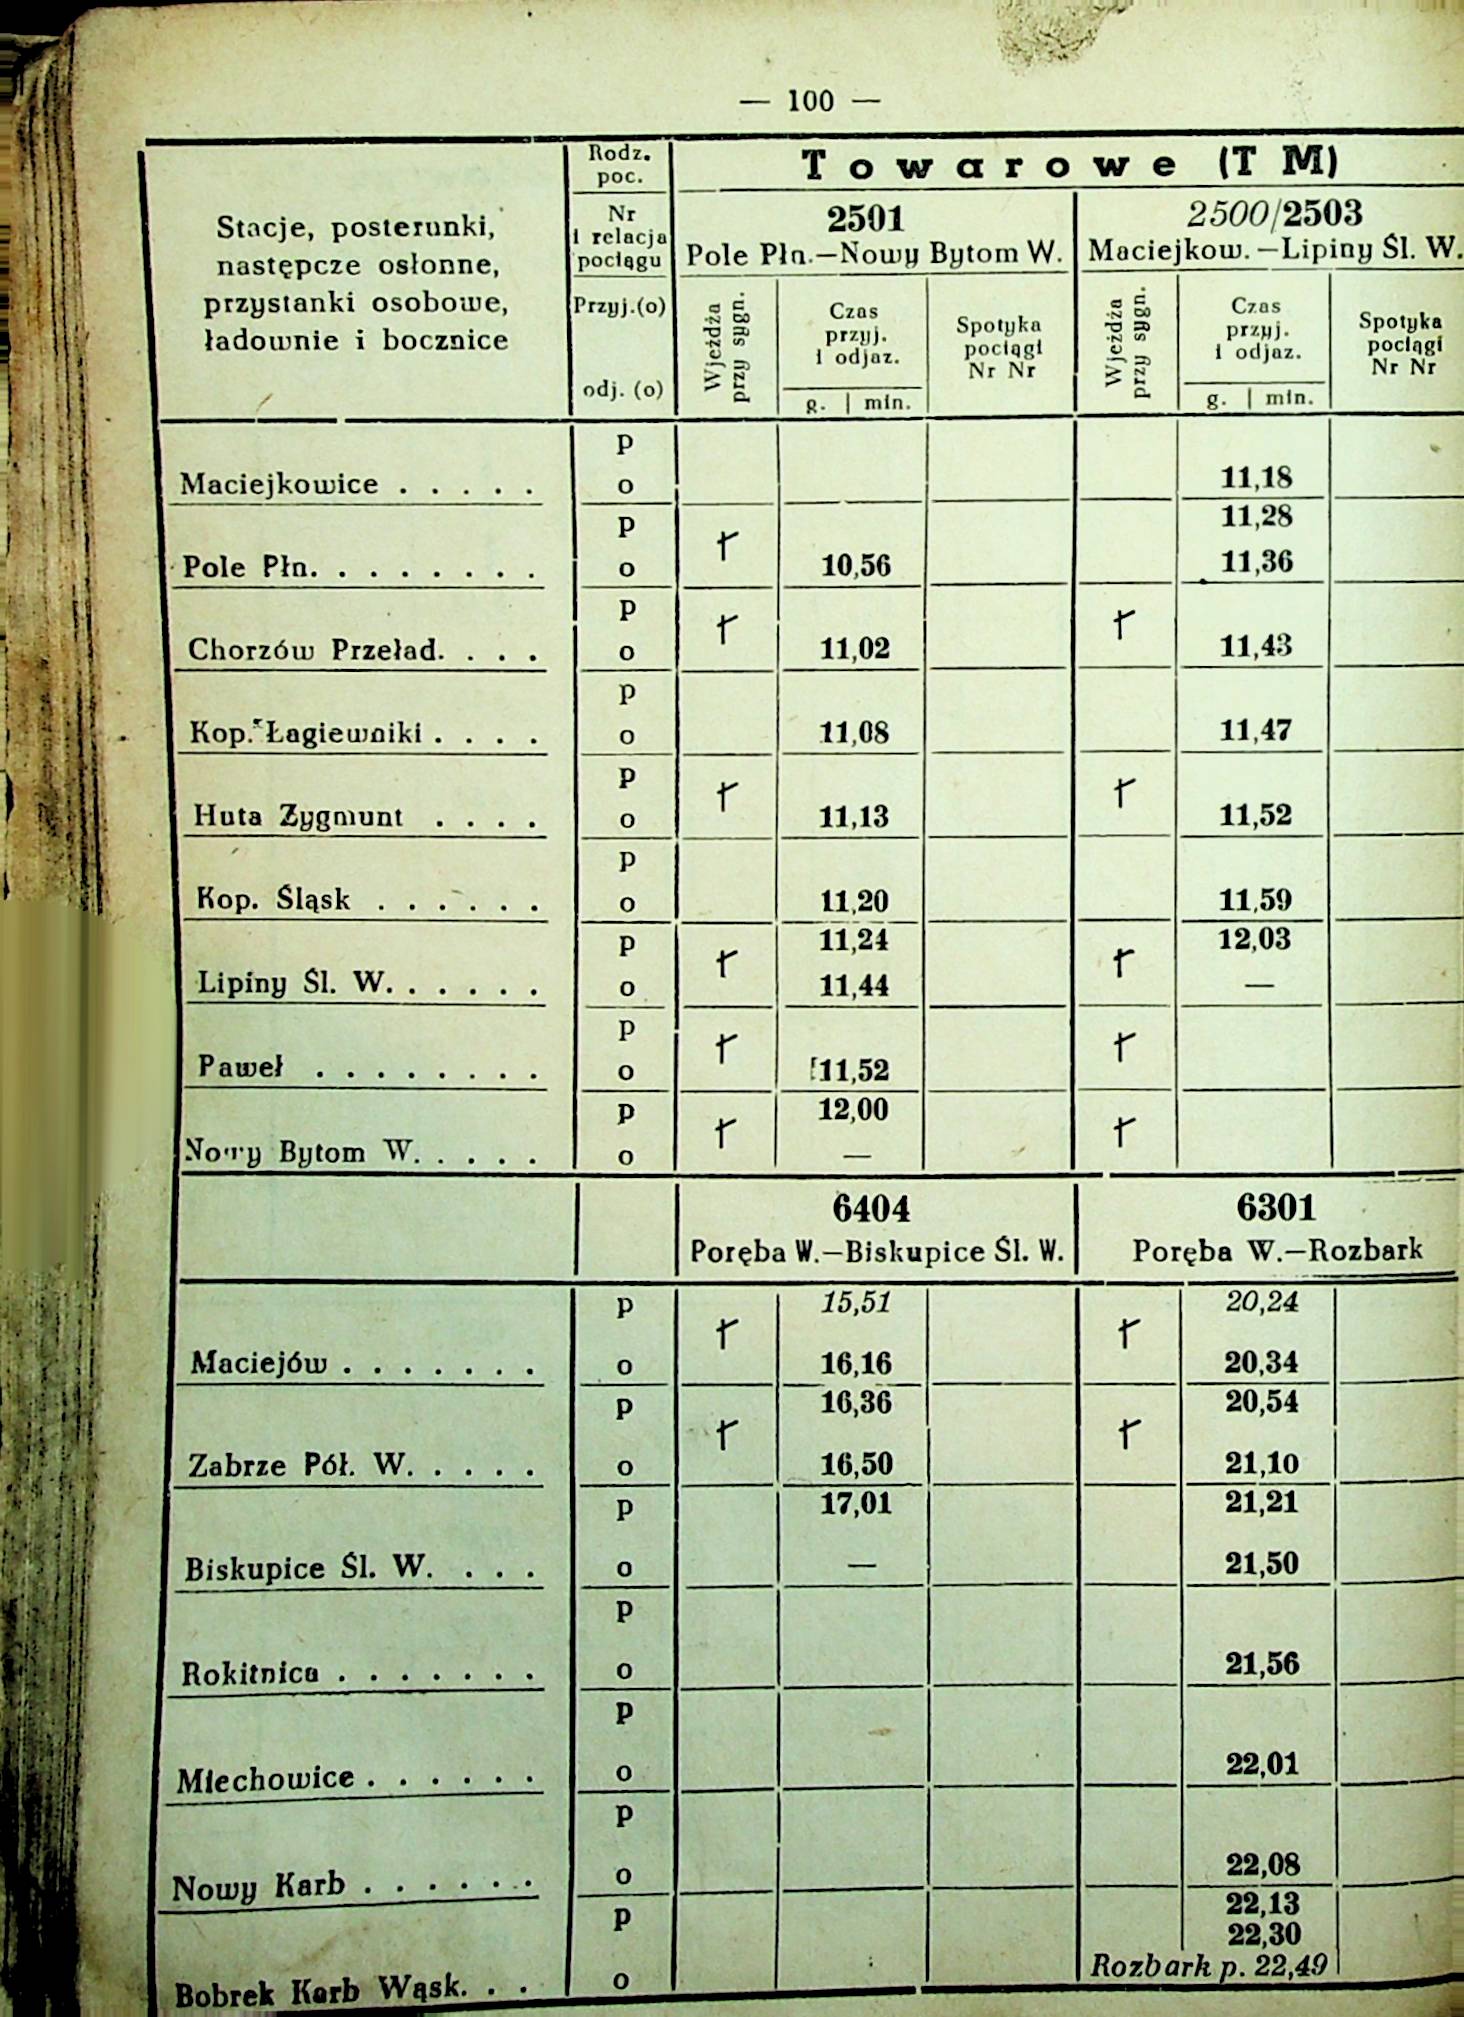 — 100 —
Stacje, posterunki,
następcze osłonne,
przystanki osobowe,
ładownie i bocznice
Rodz.
poc.
Nr
i relacja
pociągu
Przyj.(o)
odj. (o)
Towarowe (T M)
2501
Pole Płn.—Nowy Bytom W.
2500/2503
Maciejkow.—Lipiny Śl. W.
Wjeżdża
przy sygn.
Czas
przyj.
i odjaz.
g. | min.
Spotyka
pociągi
Nr Nr
Wjeżdża
przy sygn.
Czas
przyj.
i odjaz.
g. | min.
Spotyka
pociągi
Nr Nr
p
Maciejkowice . . . . . o 11,18
p 11,28
Pole Płn. . . . . . . . o † 10,56 11,36
p
Chorzów Przeład. . . . o † 11,02 † 11,43
p
Kop. Łagiewniki . . . . o 11,08 11,47
p
Huta Zygmunt . . . . o † 11,13 † 11,52
p
Kop. Śląsk . . . . . . o 11,20 11,59
p 11,24 12,03
Lipiny Śl. W. . . . . . o † 11,44 † —
p
Paweł . . . . . . . . o † 11,52 †
p 12,00
Nowy Bytom W. . . . . o † — †
6404
Poręba W.—Biskupice Śl. W.
6301
Poręba W.—Rozbark
p 15,51 20,24
Maciejów . . . . . . . o † 16,16 † 20,34
p 16,36 20,54
Zabrze Pół. W. . . . . o † 16,50 † 21,10
p 17,01 21,21
Biskupice Śl. W. . . . o — 21,50
p
Rokitnica . . . . . . . o 21,56
p
Miechowice . . . . . . o 22,01
p
Nowy Karb . . . . . . o 22,08
p 22,13
22,30
Bobrek Karb Wąsk. . . o Rozbark p. 22,49